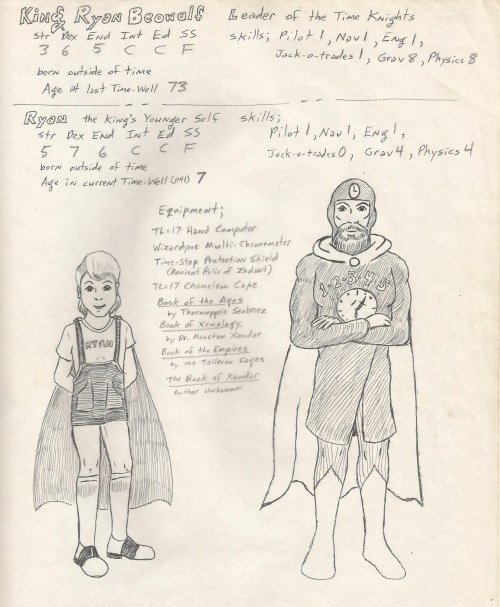 King Ryan Beowulf
Leader of the Time Knights
Str Dex End Int Ed SS
3 6 5 C C F
skills; Pilot 1, Nav 1, Eng 1,
Jack-o-trades 1, Grav 8, Physics 8
born outside of time
Age at last Time-Well 73
Ryan the King's Younger Self
skills;
Str Dex End Int Ed SS
5 7 6 C C F
Pilot 1, Nav 1, Eng 1,
Jack-o-trades 0, Grav 4, Physics 4
born outside of time
Age in current Time-Well (1141) 7
Equipment;
TL=17 Hand Computer
Wizardyne Multi-Chronometer
Time-Stop Protection Shield
(Ancient Relic of Zhdant)
TL=17 Chameleon Cape
Book of the Ages
by Thermopple
Book of Xenology
by Dr. Xandar
Book of the Empires
by the Tolleran Sages
The Book of Xandar
Author Unknown
RYAN
1·2·3·4·5